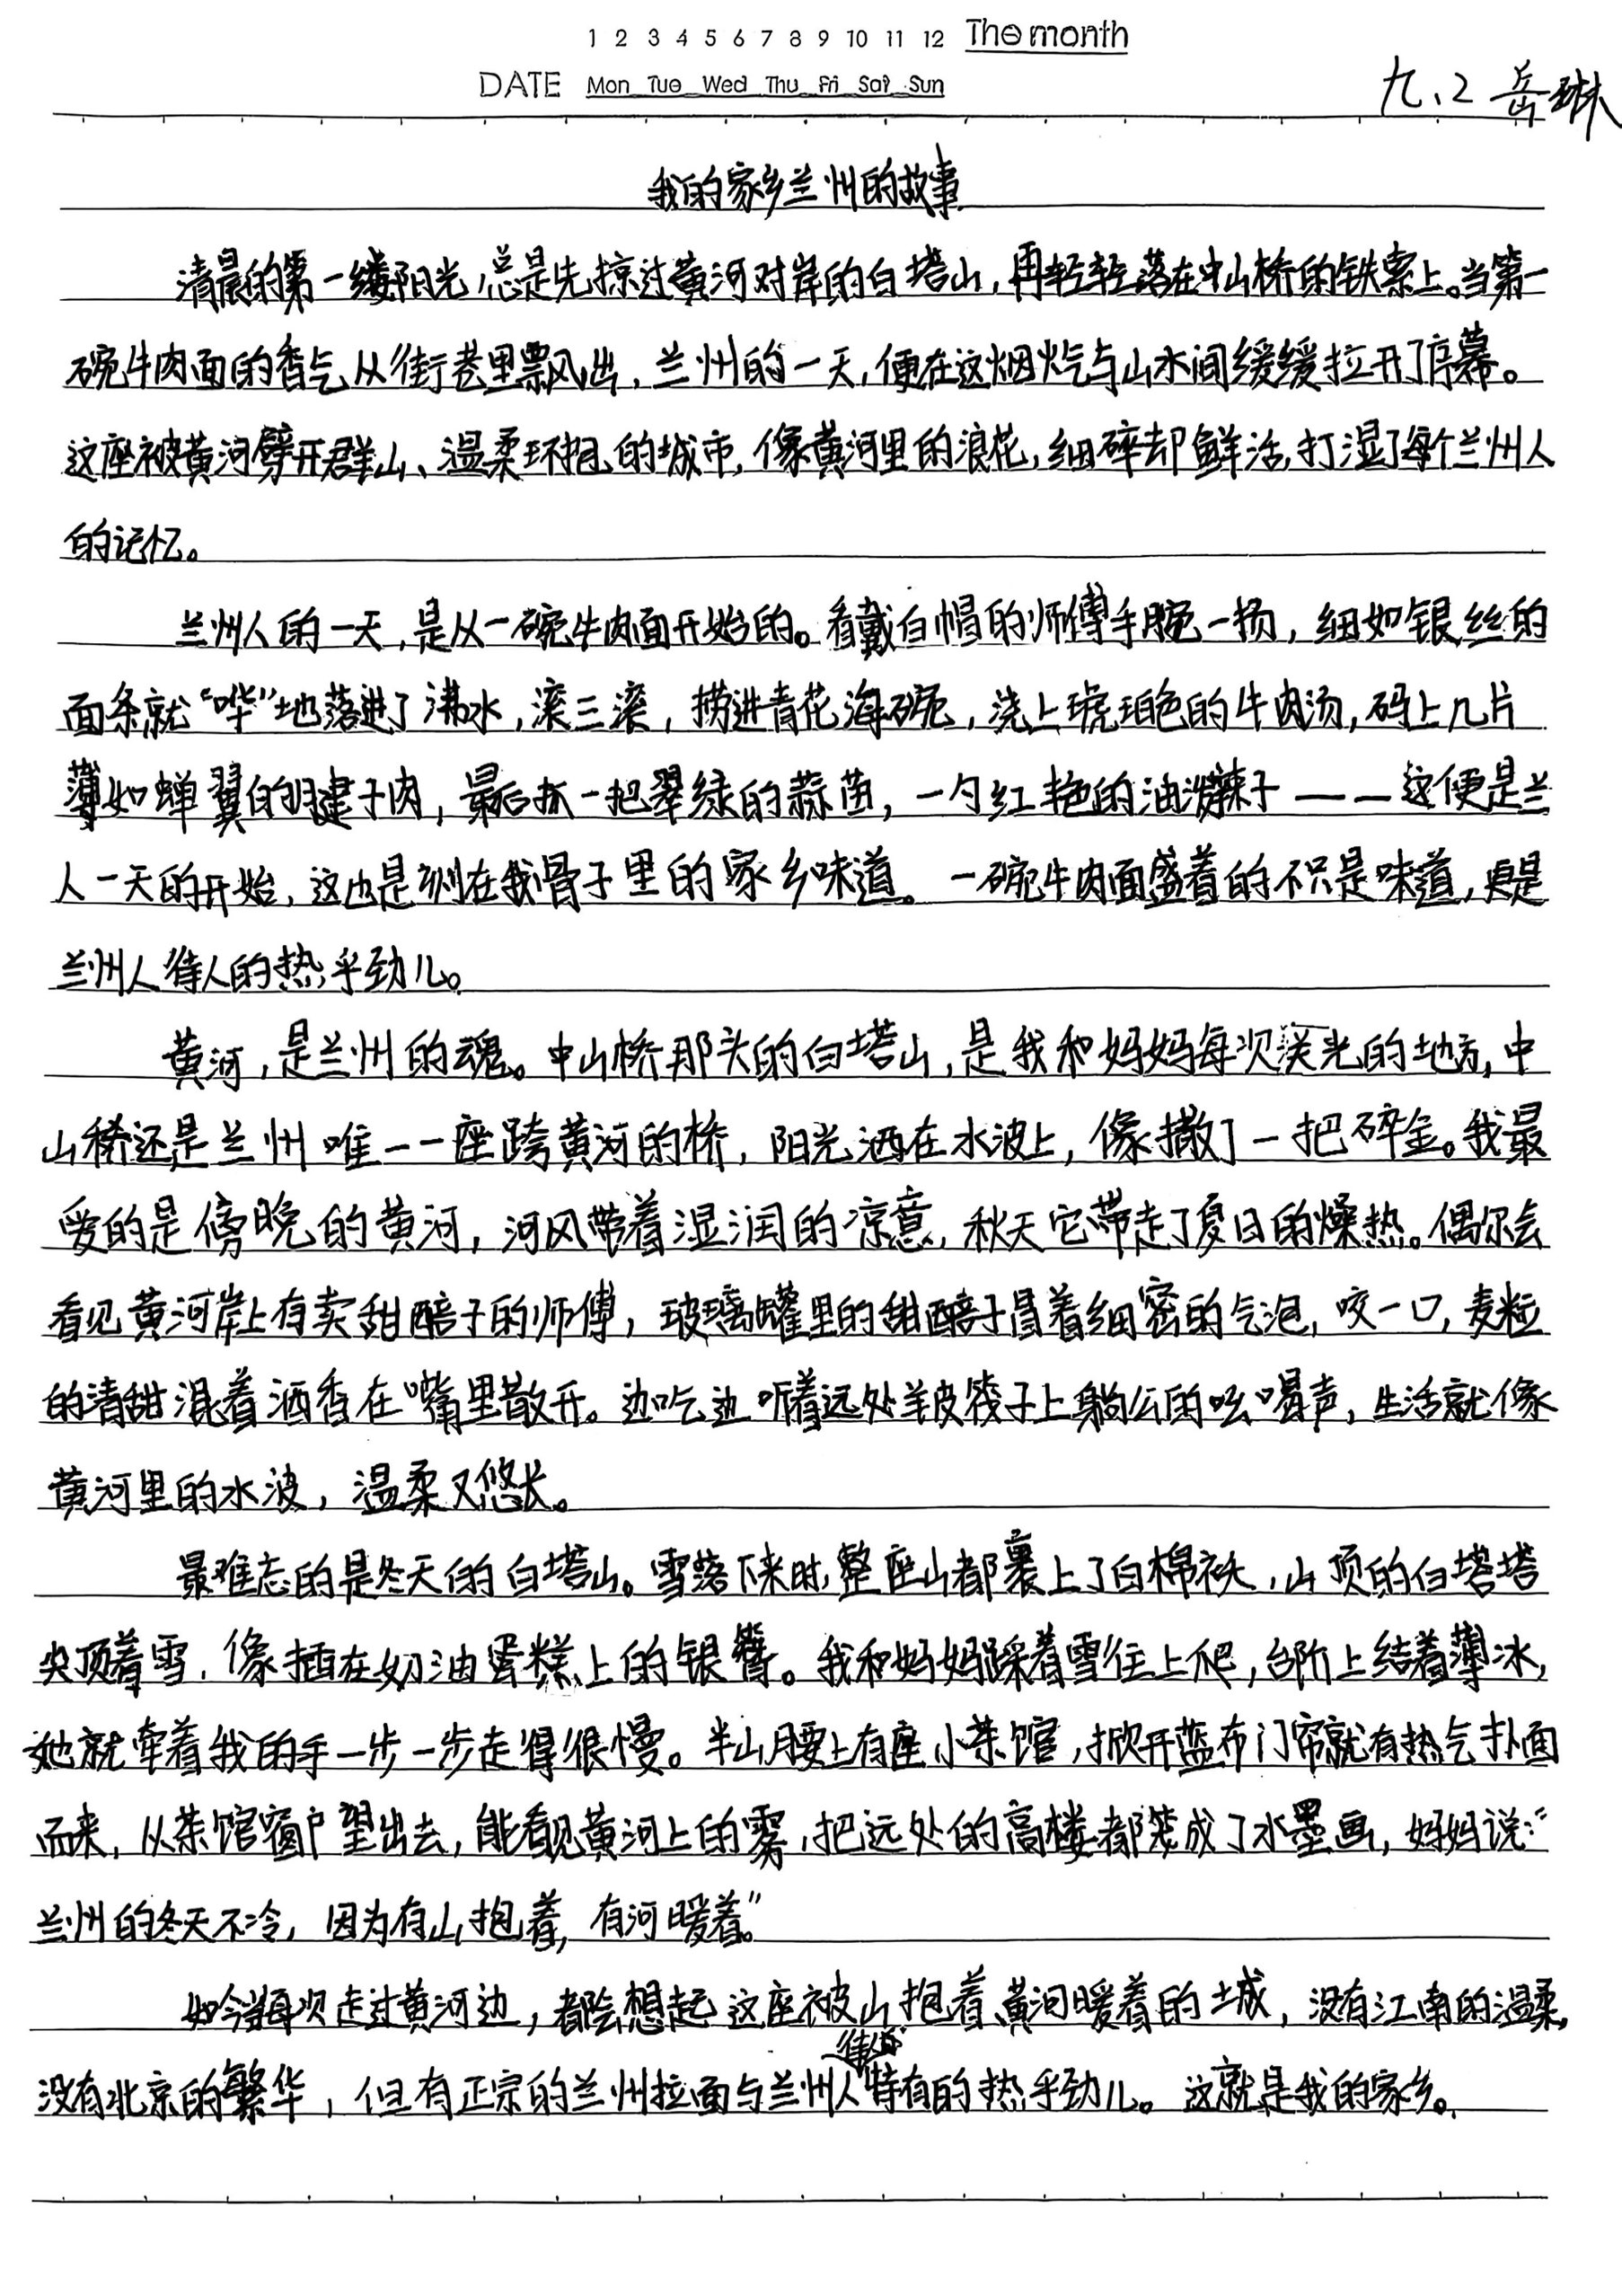 1 2 3 4 5 6 7 8 9 10 11 12 The month
DATE Mon Tue Wed Thu Fri Sat Sun
九、2 岳琳
我的家乡兰州的故事
清晨的第一缕阳光,总是先掠过黄河对岸的白塔山,再轻轻落在中山桥的铁索上。当第一
碗牛肉面的香气从街巷里飘出,兰州的一天,便在这烟火气与山水间缓缓拉开了序幕。
这座被黄河劈开群山、温柔环抱的城市,像黄河里的浪花,细碎却鲜活,打湿了每个兰州人
的记忆。
兰州人的一天,是从一碗牛肉面开始的。看戴白帽的师傅手腕一扬,细如银丝的
面条就“哗”地落进了沸水,滚三滚,捞进青花海碗,浇上琥珀色的牛肉汤,码上几片
薄如蝉翼的腱子肉,最后抓一把翠绿的蒜苗,一勺红艳的油泼辣子——这便是兰
人一天的开始,这也是刻在我骨子里的家乡味道。一碗牛肉面盛着的不只是味道,更是
兰州人待人的热乎劲儿。
黄河,是兰州的魂。中山桥那头的白塔山,是我和妈妈每次观光的地方,中
山桥还是兰州唯一一座跨黄河的桥,阳光洒在水波上,像撒了一把碎金。我最
爱的是傍晚的黄河,河风带着湿润的凉意,秋天它带走了夏日的燥热。偶尔会
看见黄河岸上有卖甜醅子的师傅,玻璃罐里的甜醅子冒着细密的气泡,咬一口,麦粒
的清甜混着酒香在嘴里散开。边吃边听着远处羊皮筏子上艄公的吆喝声,生活就像
黄河里的水波,温柔又悠长。
最难忘的是冬天的白塔山。雪落下来时,整座山都裹上了白棉袄,山顶的白塔塔
尖顶着雪,像插在奶油蛋糕上的银簪。我和妈妈踩着雪往上爬,台阶上结着薄冰,
她就牵着我的手一步一步走得很慢。半山腰上有座小茶馆,掀开蓝布门帘就有热气扑面
而来,从茶馆窗户望出去,能看见黄河上的雾,把远处的高楼都笼成了水墨画,妈妈说:“
兰州的冬天不冷,因为有山抱着,有河暖着。”
如今当每次走过黄河边,都会想起这座被山抱着、黄河暖着的土城,没有江南的温柔,
没有北京的繁华,但有正宗的兰州拉面与兰州人特有的热乎劲儿。这就是我的家乡。